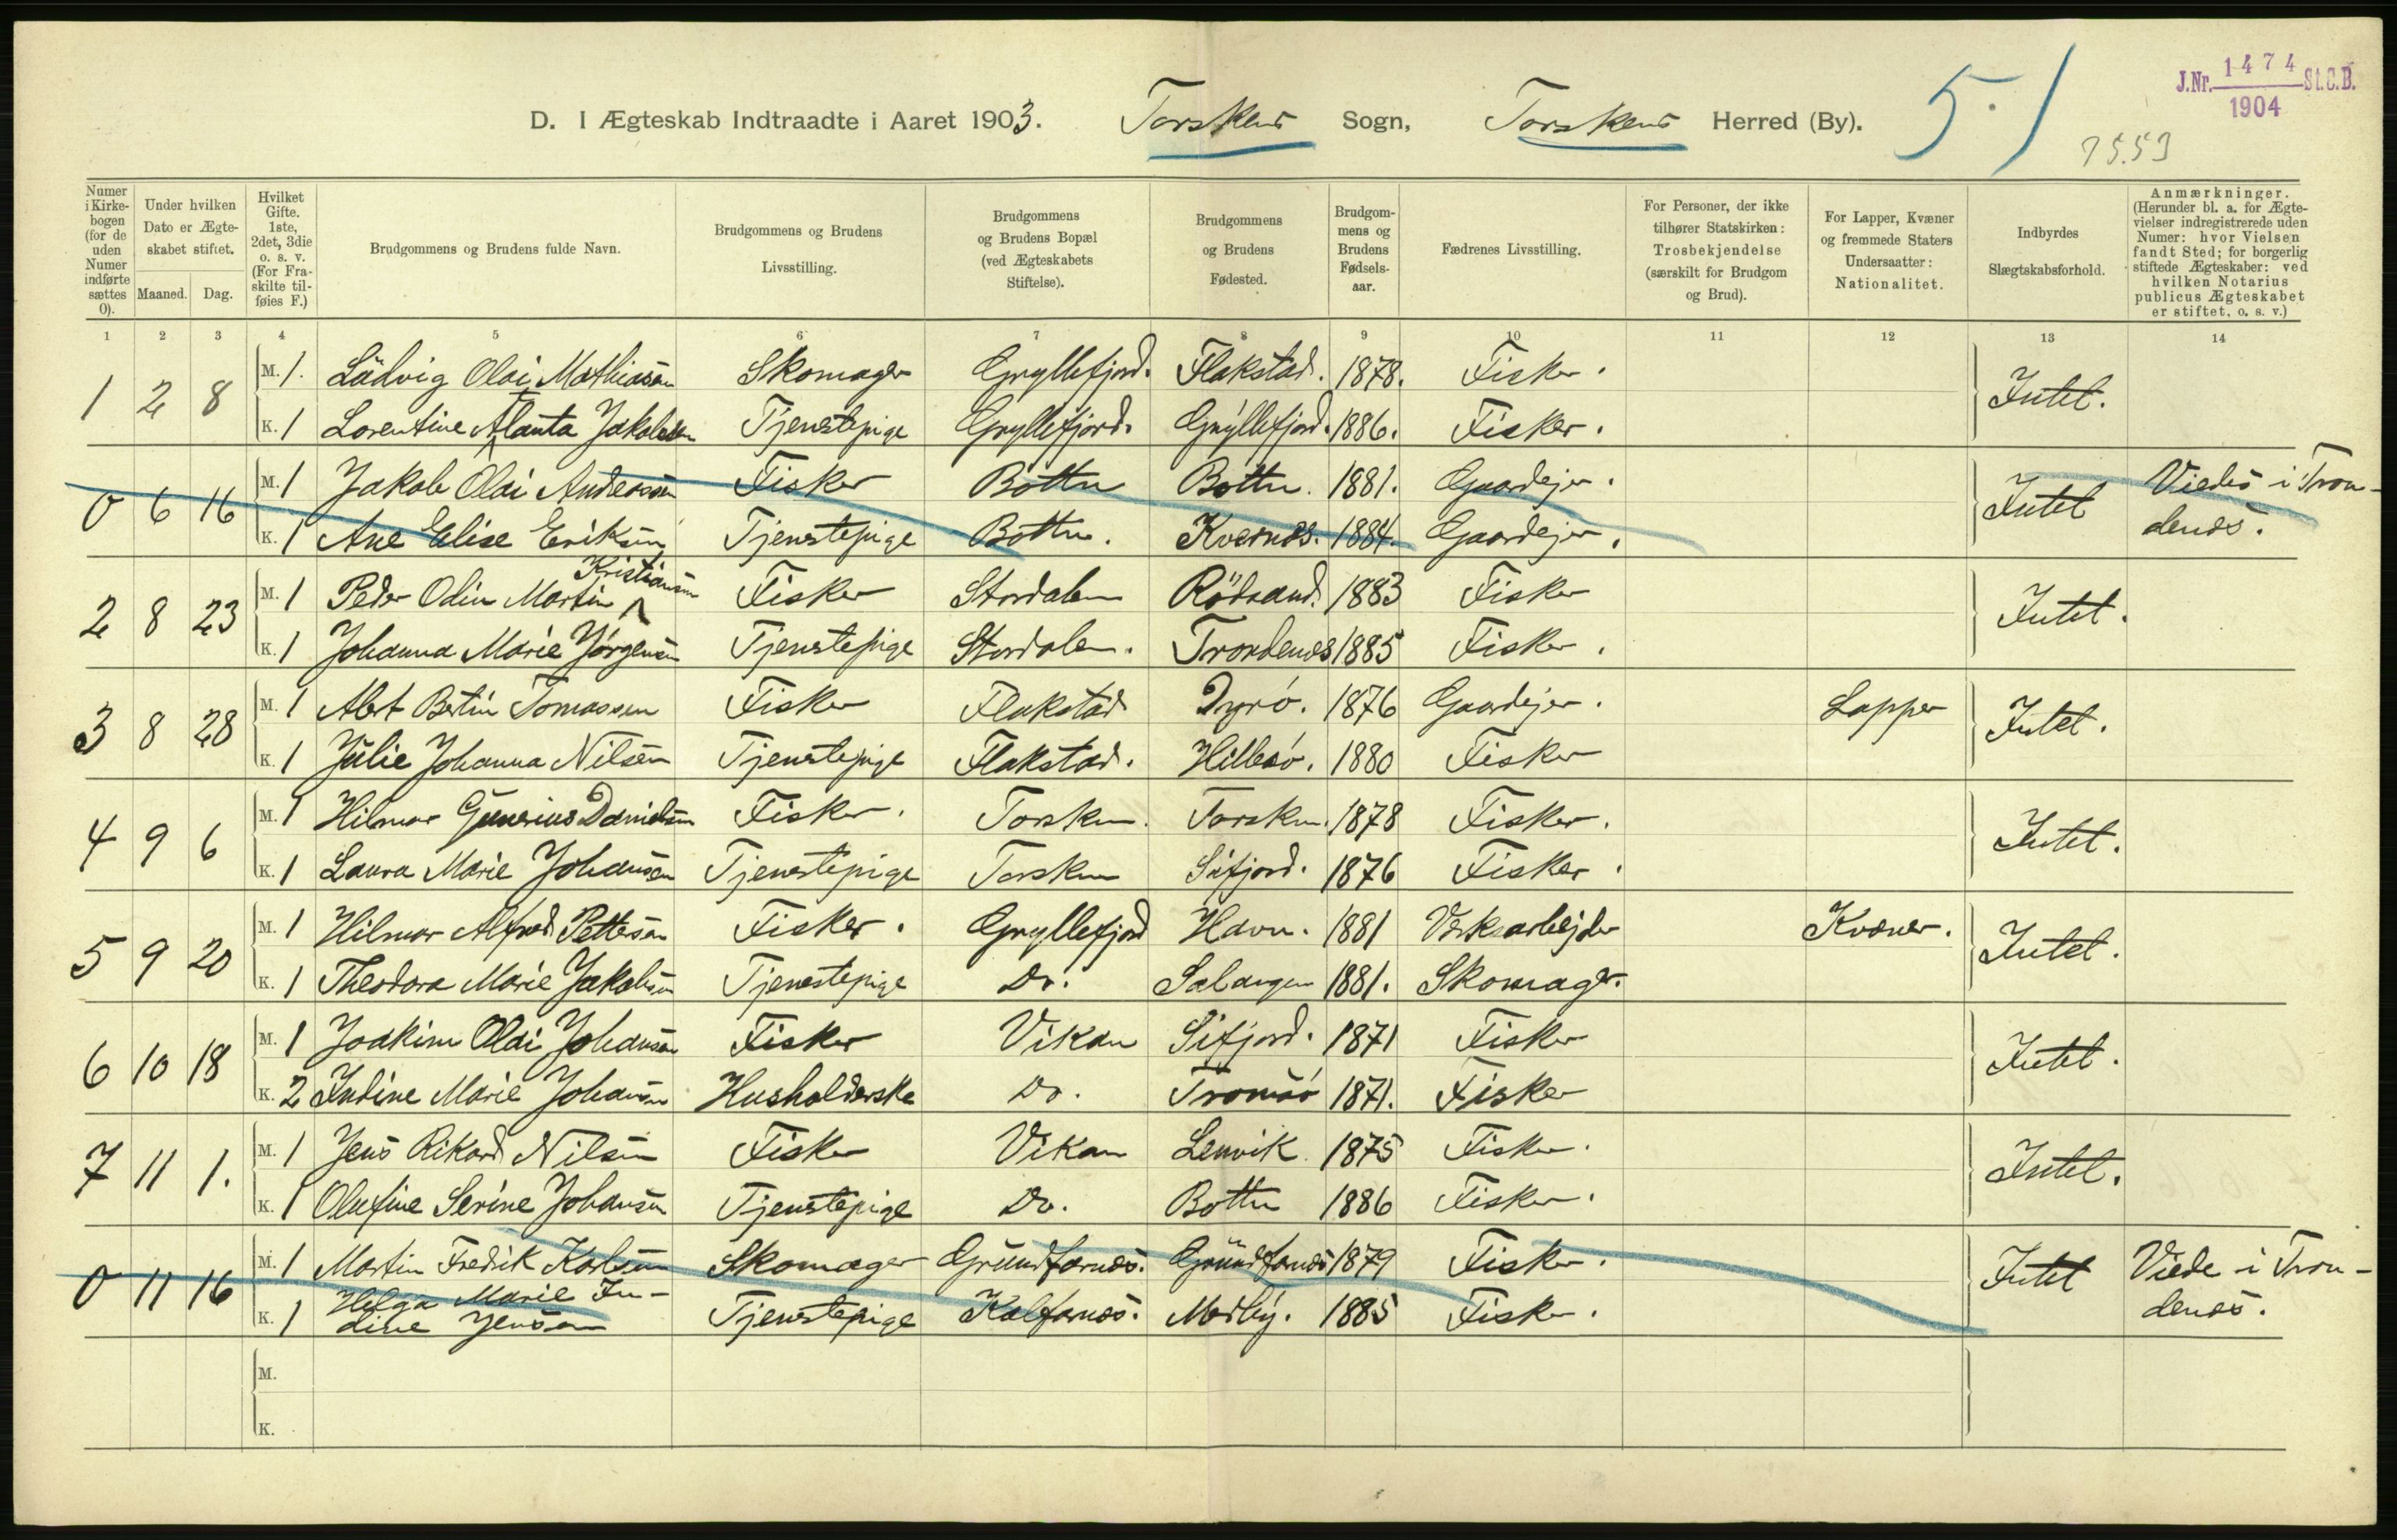 J.Nr. 1474 St.C.B.
1904
D. I Ægteskab Indtraadte i Aaret 1903. Torskens Sogn, Torskens Herred (By). 5.
Numer i Kirkebogen (for de uden Numer indførte sættes 0).
Under hvilken Dato er Ægteskabet stiftet.
Maaned. Dag.
Hvilket Gifte. 1ste, 2det, 3die o. s. v. (For Fraskilte tilføies F.)
Brudgommens og Brudens fulde Navn.
Brudgommens og Brudens Livsstilling.
Brudgommens og Brudens Bopæl (ved Ægteskabets Stiftelse).
Brudgommens og Brudens Fødested.
Brudgommens og Brudens Fødselsaar.
Fædrenes Livsstilling.
For Personer, der ikke tilhører Statskirken: Trosbekjendelse (særskilt for Brudgom og Brud).
For Lapper, Kvæner og fremmede Staters Undersaatter: Nationalitet.
Indbyrdes Slægtskabsforhold.
Anmærkninger. (Herunder bl. a. for Ægtevielser indregistrerede uden Numer: hvor Vielsen fandt Sted; for borgerlig stiftede Ægteskaber: ved hvilken Notarius publicus Ægteskabet er stiftet, o. s. v.)
1 2 3 4 5 6 7 8 9 10 11 12 13 14
1 2 8 M. 1. Ludvig Olai Mathiasen Skomager Gryllefjord. Flakstad. 1878. Fisker. Intet.
K. 1 Lorentine Alanta Jakobsen Tjenestepige Gryllefjord. Gryllefjord. 1886. Fisker.
0 6 16 M. 1 Jakob Olai Andersen Fisker Bottn Bottn. 1881. Gaardejer. Intet Viedes i Trondenæs.
K. 1 Ane Elise Eriksen Tjenestepige Bottn. Kvernæs. 1884. Gaardejer.
2 8 23 M. 1 Peder Odin Martin Kristiansen Fisker Stordalen Rödsand. 1883 Fisker Intet.
K. 1 Johanna Marie Jørgensen Tjenestepige Stordalen. Trondenæs 1885 Fisker.
3 8 28 M. 1 Albert Bertin Tomassen Fisker Flakstad Dyrö. 1876 Gaardejer. Lapper Intet.
K. 1 Julie Johanna Nilsen Tjenestepige Flakstad. Hillesö. 1880 Fisker
4 9 6 M. 1 Hilmar Gunerius Danielsen Fisker. Torsken. Torsken. 1878 Fisker. Intet.
K. 1 Laura Marie Johansen Tjenestepige Torsken Sifjord. 1876 Fisker.
5 9 20 M. 1 Hilmar Alfred Pettersen Fisker. Gryllefjord Havn. 1881 Værkarbejder Kvæner. Intet.
K. 1 Theodora Marie Jakobsen Tjenestepige Do. Salangen 1881. Skomager.
6 10 18 M. 1 Joakim Olai Johansen Fisker Vikan Sifjord. 1871 Fisker Intet.
K. 2 Indine Marie Johansen Husholderske Do. Tromsö 1871. Fisker
7 11 1. M. 1 Jens Rikard Nilsen Fisker Vikan Lenvik 1875 Fisker. Intet.
K. 1 Olufine Serine Johansen Tjenestepige Do. Bottn 1886 Fisker.
0 11 16 M. 1 Martin Fredrik Karlsen Skomager Grundfarnæs. Grundfarnæs 1879 Fisker. Intet Viede i Trondenæs.
K. 1 Helga Marie Indine Jensen Tjenestepige Kalfarnæs. Medby. 1885 Fisker.
M.
K.